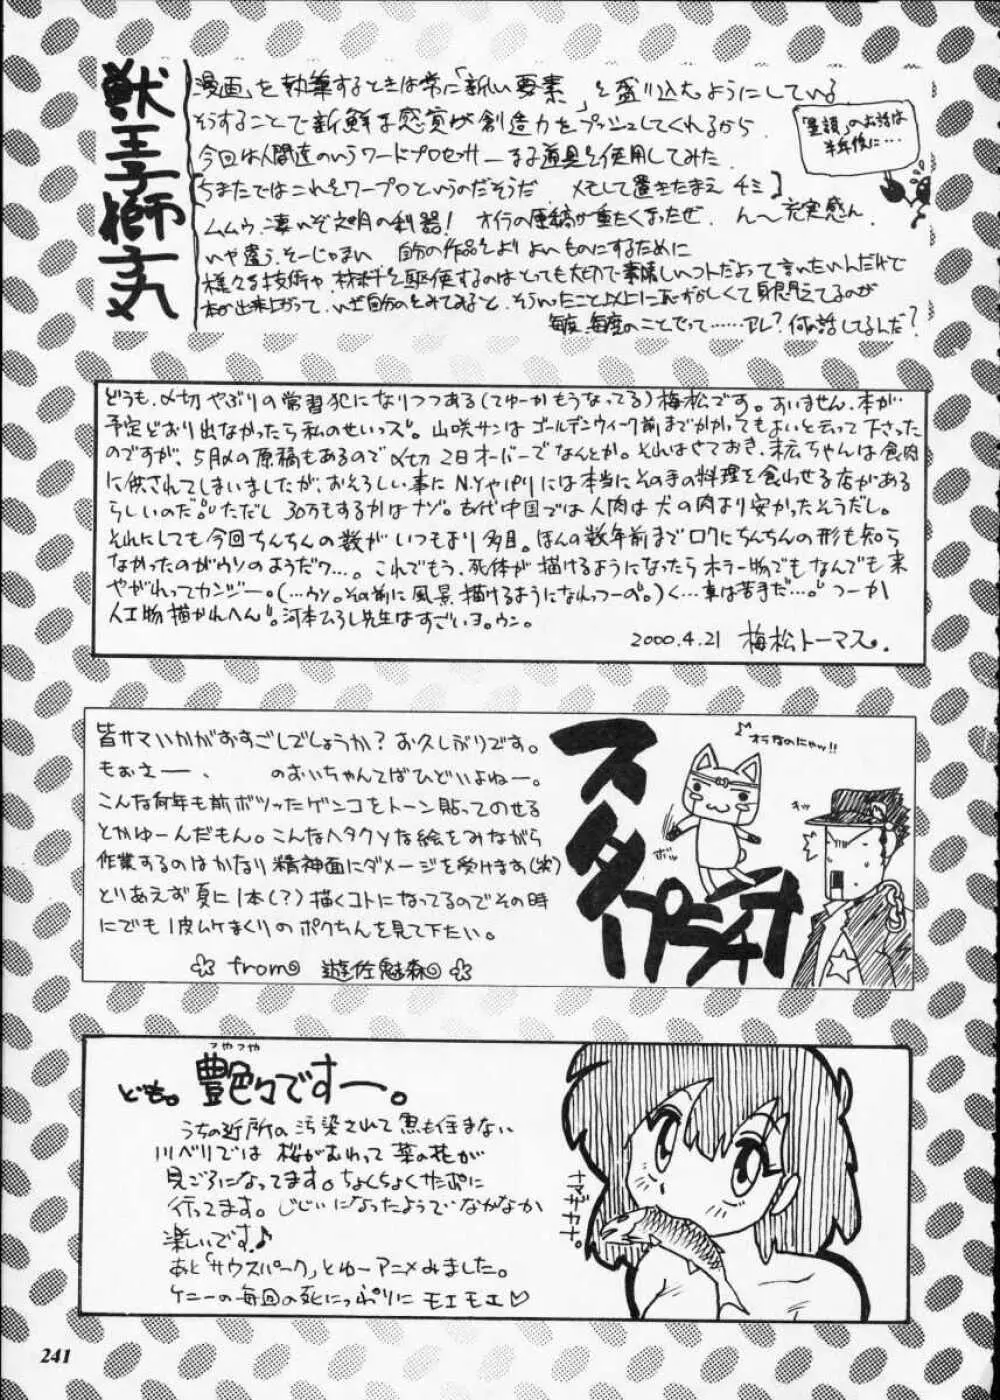 獣王子獅子丸
漫画を執筆するときは常に「新しい要素」を盛り込むようにしている
そうすることで新鮮な感覚が創造力をプッシュしてくれるから
今回は人間達のいうワードプロセッサーなる道具を使用してみた
ちまたではこれをワープロというのだそうだ メモして置きたまえ チミ
ムムウ、凄いぞ文明の利器! オイラの原稿が重たくなったぜ、ん〜充実感ん、
いや違う、そーじゃない 自分の作品をよりよいものにするために
様々な技術や、素材を駆使するのはとっても大切で素晴しいコトだよって言いたいんだけど
本が出来上がって、いざ自分のをみてみると、そういったこと以上にはずかしくて身悶えてるのが
毎度、毎度のことでって……アレ?何の話してるんだ?
のお話は
半年後に…
どうも、〆切やぶりの常習犯になりつつある(てゆーかもうなってる)梅松です。すいません、本が…
予定どおり出なかったら私のせいっス゛。山咲サンはゴールデンウィーク前までかかってもよいと云って下さった
のですが、5月〆の原稿もあるので〆切2日オーバーでなんとか。それはさておき、末広ちゃんは食肉
に供されてしまいましたが、おそろしい事にN.Yやパリには本当にその手の料理を食わせる店がある
らしいのだ。ただし30万もするかはナゾ。古代中国では人肉は犬の肉より安かったそうだし。
それにしても今回ちんちんの数がいつもより多目。ほんの数年前までロクにちんちんの形も知ら
なかったのがウソのようだワ…。これでもう、死体が描けるようになったらホラー物でもなんでも来
やがれってカンジー。(…ウソ。その前に風景描けるようになれっつーの。)く…車は苦手だ…。つーか
人工物描かれへん。河本ひろし先生はすごいヨ。ウン。
2000.4.21 梅松トーマス。
皆サマいかがおすごしでしょうか?お久しぶりです。
もぉさー、 のおいちゃんてばひどいよねー。
こんな何年も前ボツったゲンコをトーン貼ってのせる
とかゆーんだもん。こんなヘタクソな絵をみながら
作業するのはかなり精神面にダメージを受けます(笑)
とりあえず夏に1本(?)描くコトになってるのでその時
にでも1皮ムケまくりのボクちんを見て下たい。
☆from 遊佐魅森☆
スタープラチナ
オラなのにゃッ!!
オッ
ども。艶々ですー。
つやつや
うちの近所の汚染されて魚も住まない
川べりでは桜がむれって菜の花が
見ごろになってます。ちょくちょくサボに
行ってます。じじいになったようでなかなか
楽しいです♪
あと「サウスパーク」とゆーアニメみました。
ケニーの毎回の死にっぷりにモエモエ♡
ナマグサナ。
241